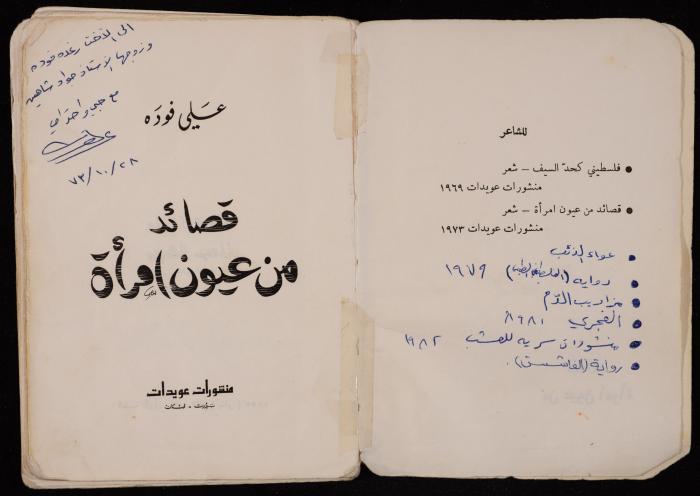 للشاعر
● فلسطيني كحدّ السيف – شعر
منشورات عويدات ١٩٦٩
● قصائد من عيون امرأة – شعر
منشورات عويدات ١٩٧٣
● عواء الذئب
● رواية (الفلسطيني الطيب) ١٩٧٩
● مزاريب الدّم
● الغجري ١٩٨١
● منشورات سرية للعشب ١٩٨٢
● رواية (الفاشستي).
الى الاخت رغده فوده
وزوجها الاستاذ جواد شاهين
مع حبي واحترامي
٧٣/١٠/٢٨
عَلي فودَه
قصائد
من عيون امرأة
منشورات عويدات
بيروت - لبنان